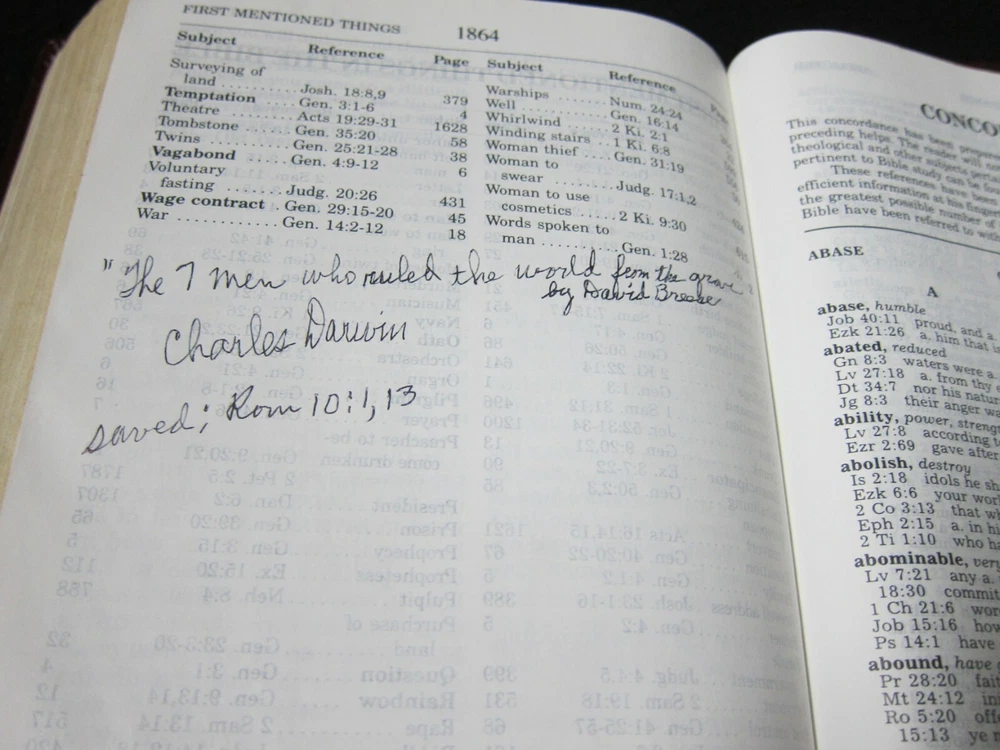 FIRST MENTIONED THINGS 1864
Subject Reference Page
Surveying of
land ........ Josh. 18:8,9 379
Temptation ........ Gen. 3:1-6 4
Theatre ........ Acts 19:29-31 1628
Tombstone ........ Gen. 35:20 58
Twins ........ Gen. 25:21-28 38
Vagabond ..... Gen. 4:9-12 6
Voluntary
fasting ....... Judg. 20:26 431
Wage contract . Gen. 29:15-20 45
War .......... Gen. 14:2-12 18
Subject Reference
Warships ....... Num. 24:24
Well ........ Gen. 16:14
Whirlwind ..... 2 Ki. 2:1
Winding stairs . 1 Ki. 6:8
Woman thief .. Gen. 31:19
Woman to
swear ....... Judg. 17:1,2
Woman to use
cosmetics ..... 2 Ki. 9:30
Words spoken to
man ......... Gen. 1:28
"The 7 Men who ruled the world from the grave
by David Breese
Charles Darwin
saved; Rom 10:1,13
CONCO
This concordance has been prepare
preceding helps. The reader will no
theological and other subjects
pertinent to Bible study can be
These references have been
efficient information at his finger
the greatest possible number of
Bible have been referred to
ABASE
A
abase, humble
Job 40:11 proud, and a.
Ezk 21:26 a. him that is
abated, reduced
Gn 8:3 waters were a.
Lv 27:18 a. from thy
Dt 34:7 nor his natur
Jg 8:3 their anger wa
ability, power, streng
Lv 27:8 according
Ezr 2:69 gave after
abolish, destroy
Is 2:18 idols he sh
Ezk 6:6 your wor
2 Co 3:13 that wh
Eph 2:15 a. in hi
2 Ti 1:10 who ha
abominable, very
Lv 7:21 any a.
18:30 commit
1 Ch 21:6 wor
Job 15:16 how
Ps 14:1 have
abound, have
Pr 28:20 fait
Mt 24:12 in
Ro 5:20 off
15:13 ye